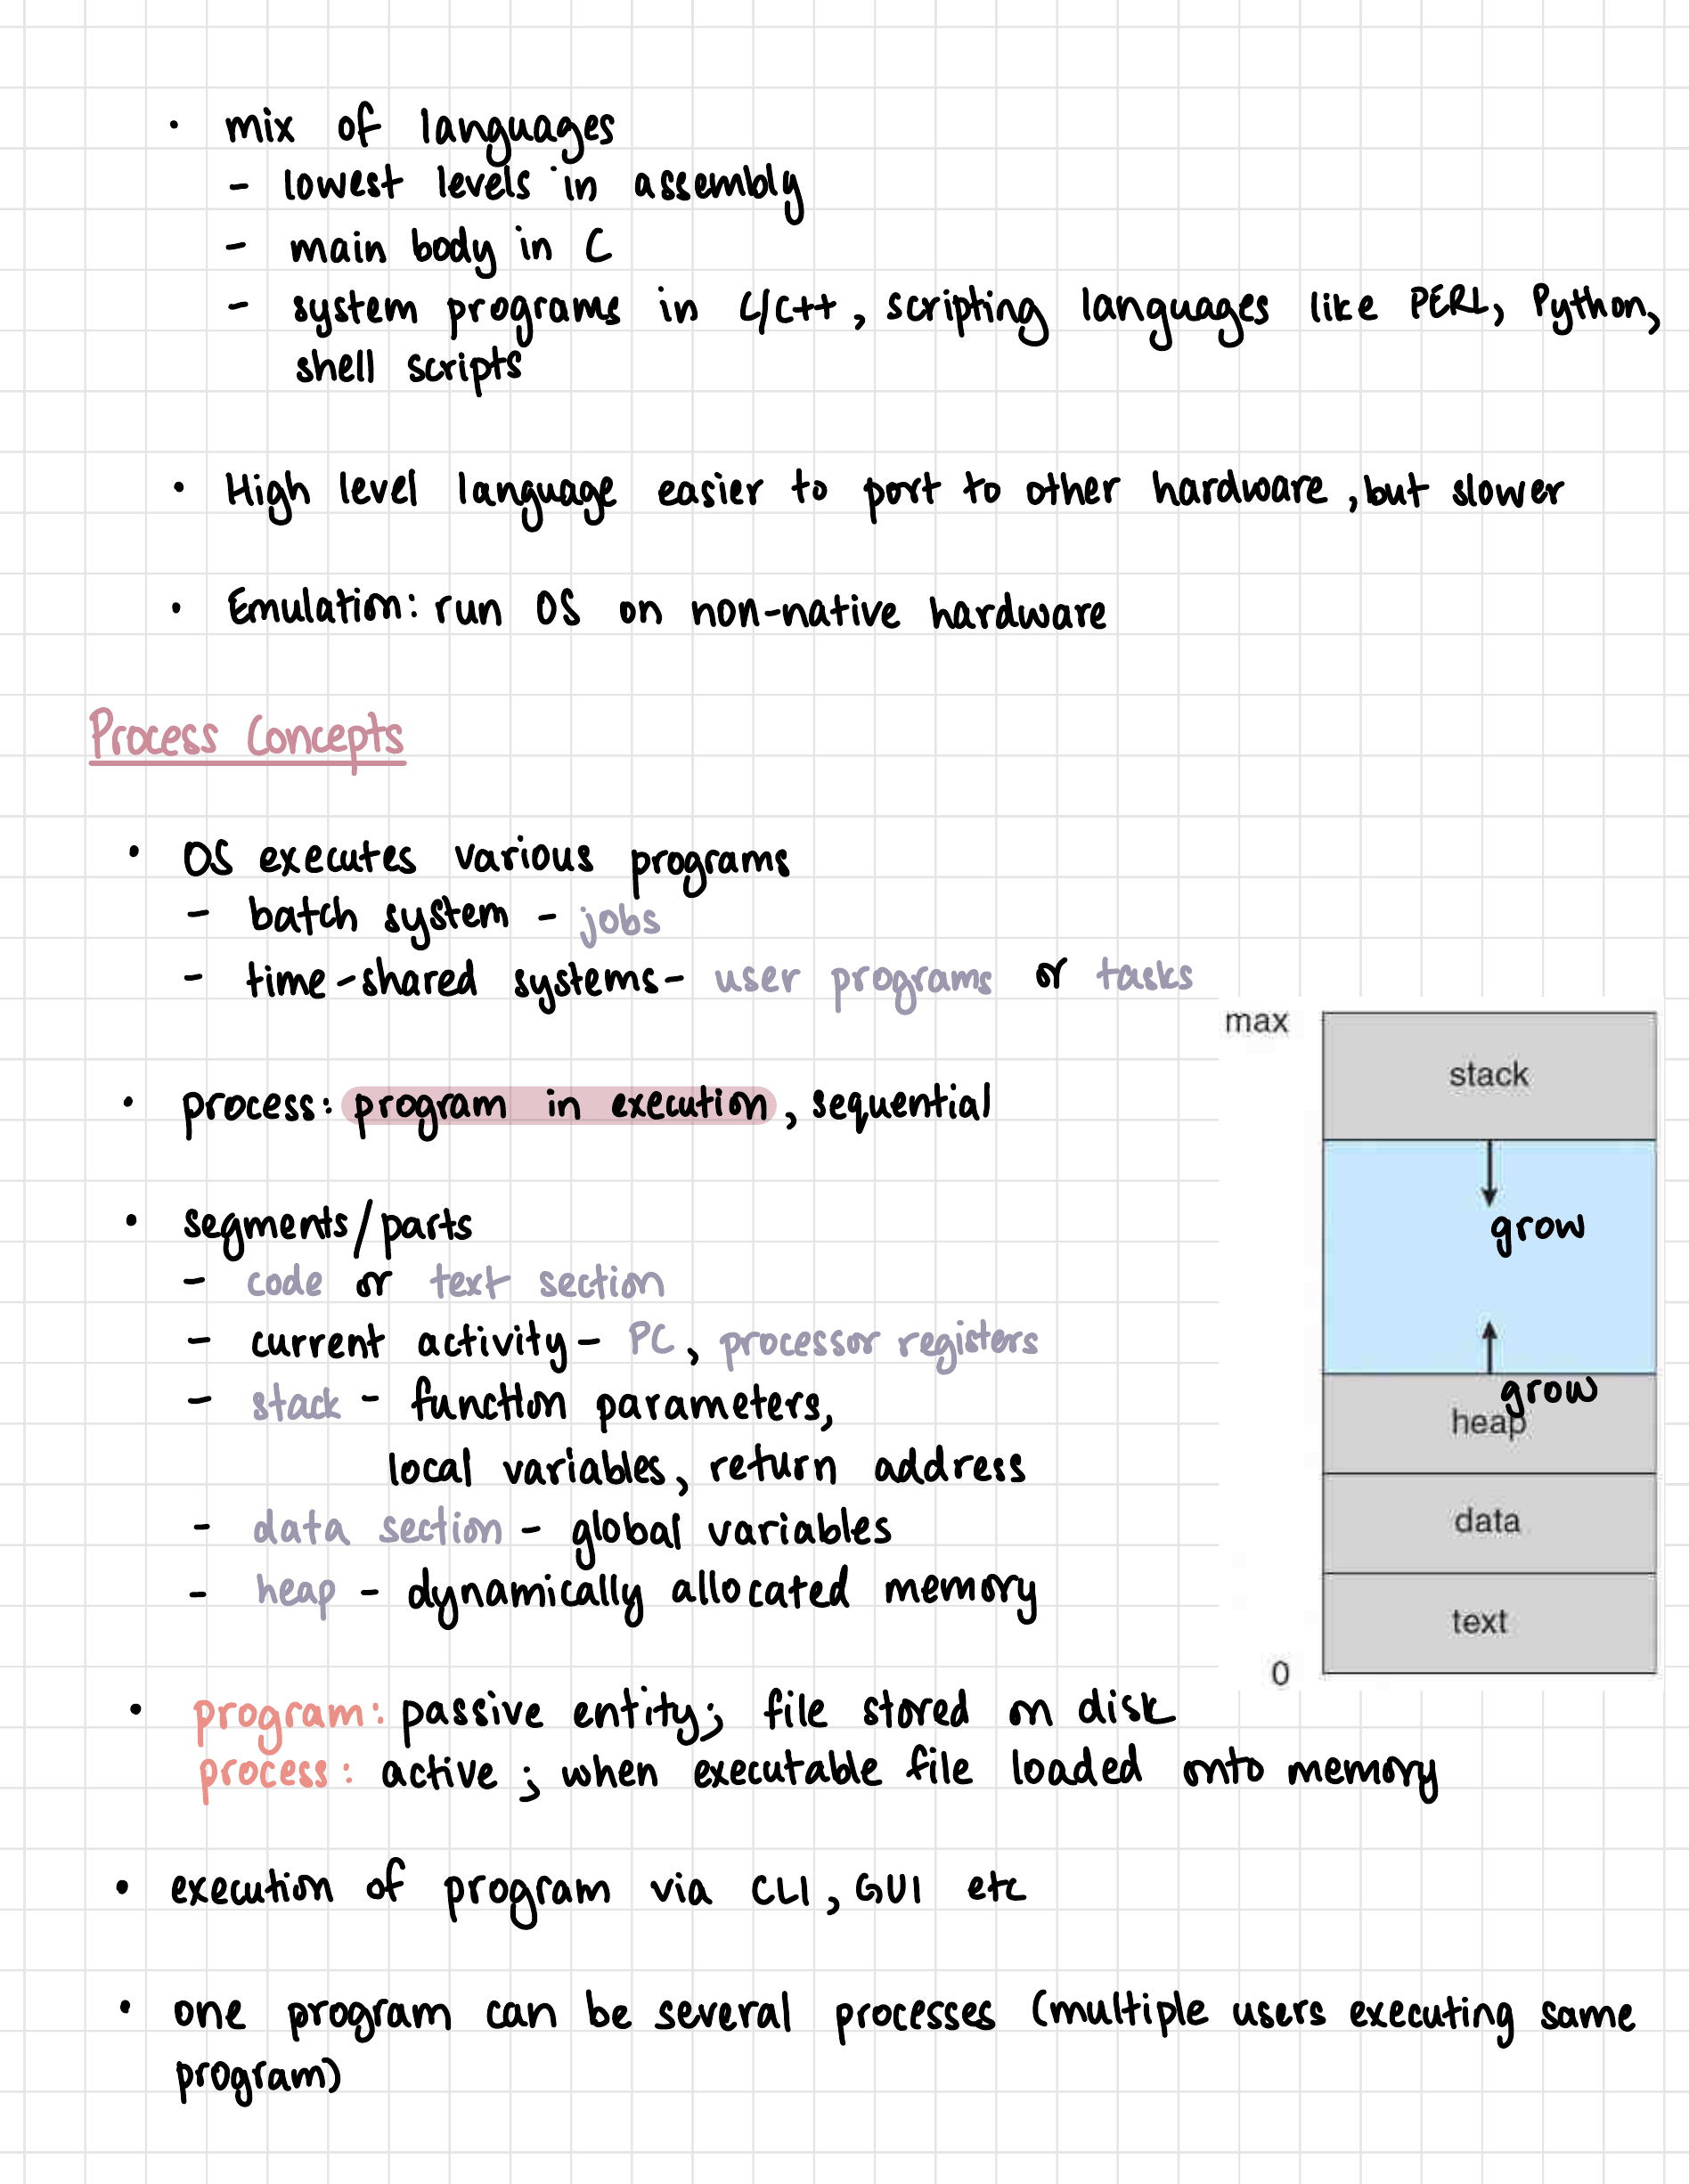 • mix of languages
- lowest levels in assembly
- main body in C
- system programs in C/C++, scripting languages like PERL, Python,
shell scripts
• High level language easier to port to other hardware, but slower
• Emulation: run OS on non-native hardware
Process Concepts
• OS executes various programs
- batch system - jobs
- time-shared systems - user programs or tasks
• process: program in execution, sequential
• segments/parts
- code or text section
- current activity - PC, processor registers
- stack - function parameters,
local variables, return address
- data section - global variables
- heap - dynamically allocated memory
max
stack
grow
grow
heap
data
text
0
• program: passive entity; file stored on disk
process: active; when executable file loaded onto memory
• execution of program via CLI, GUI etc
• one program can be several processes (multiple users executing same
program)